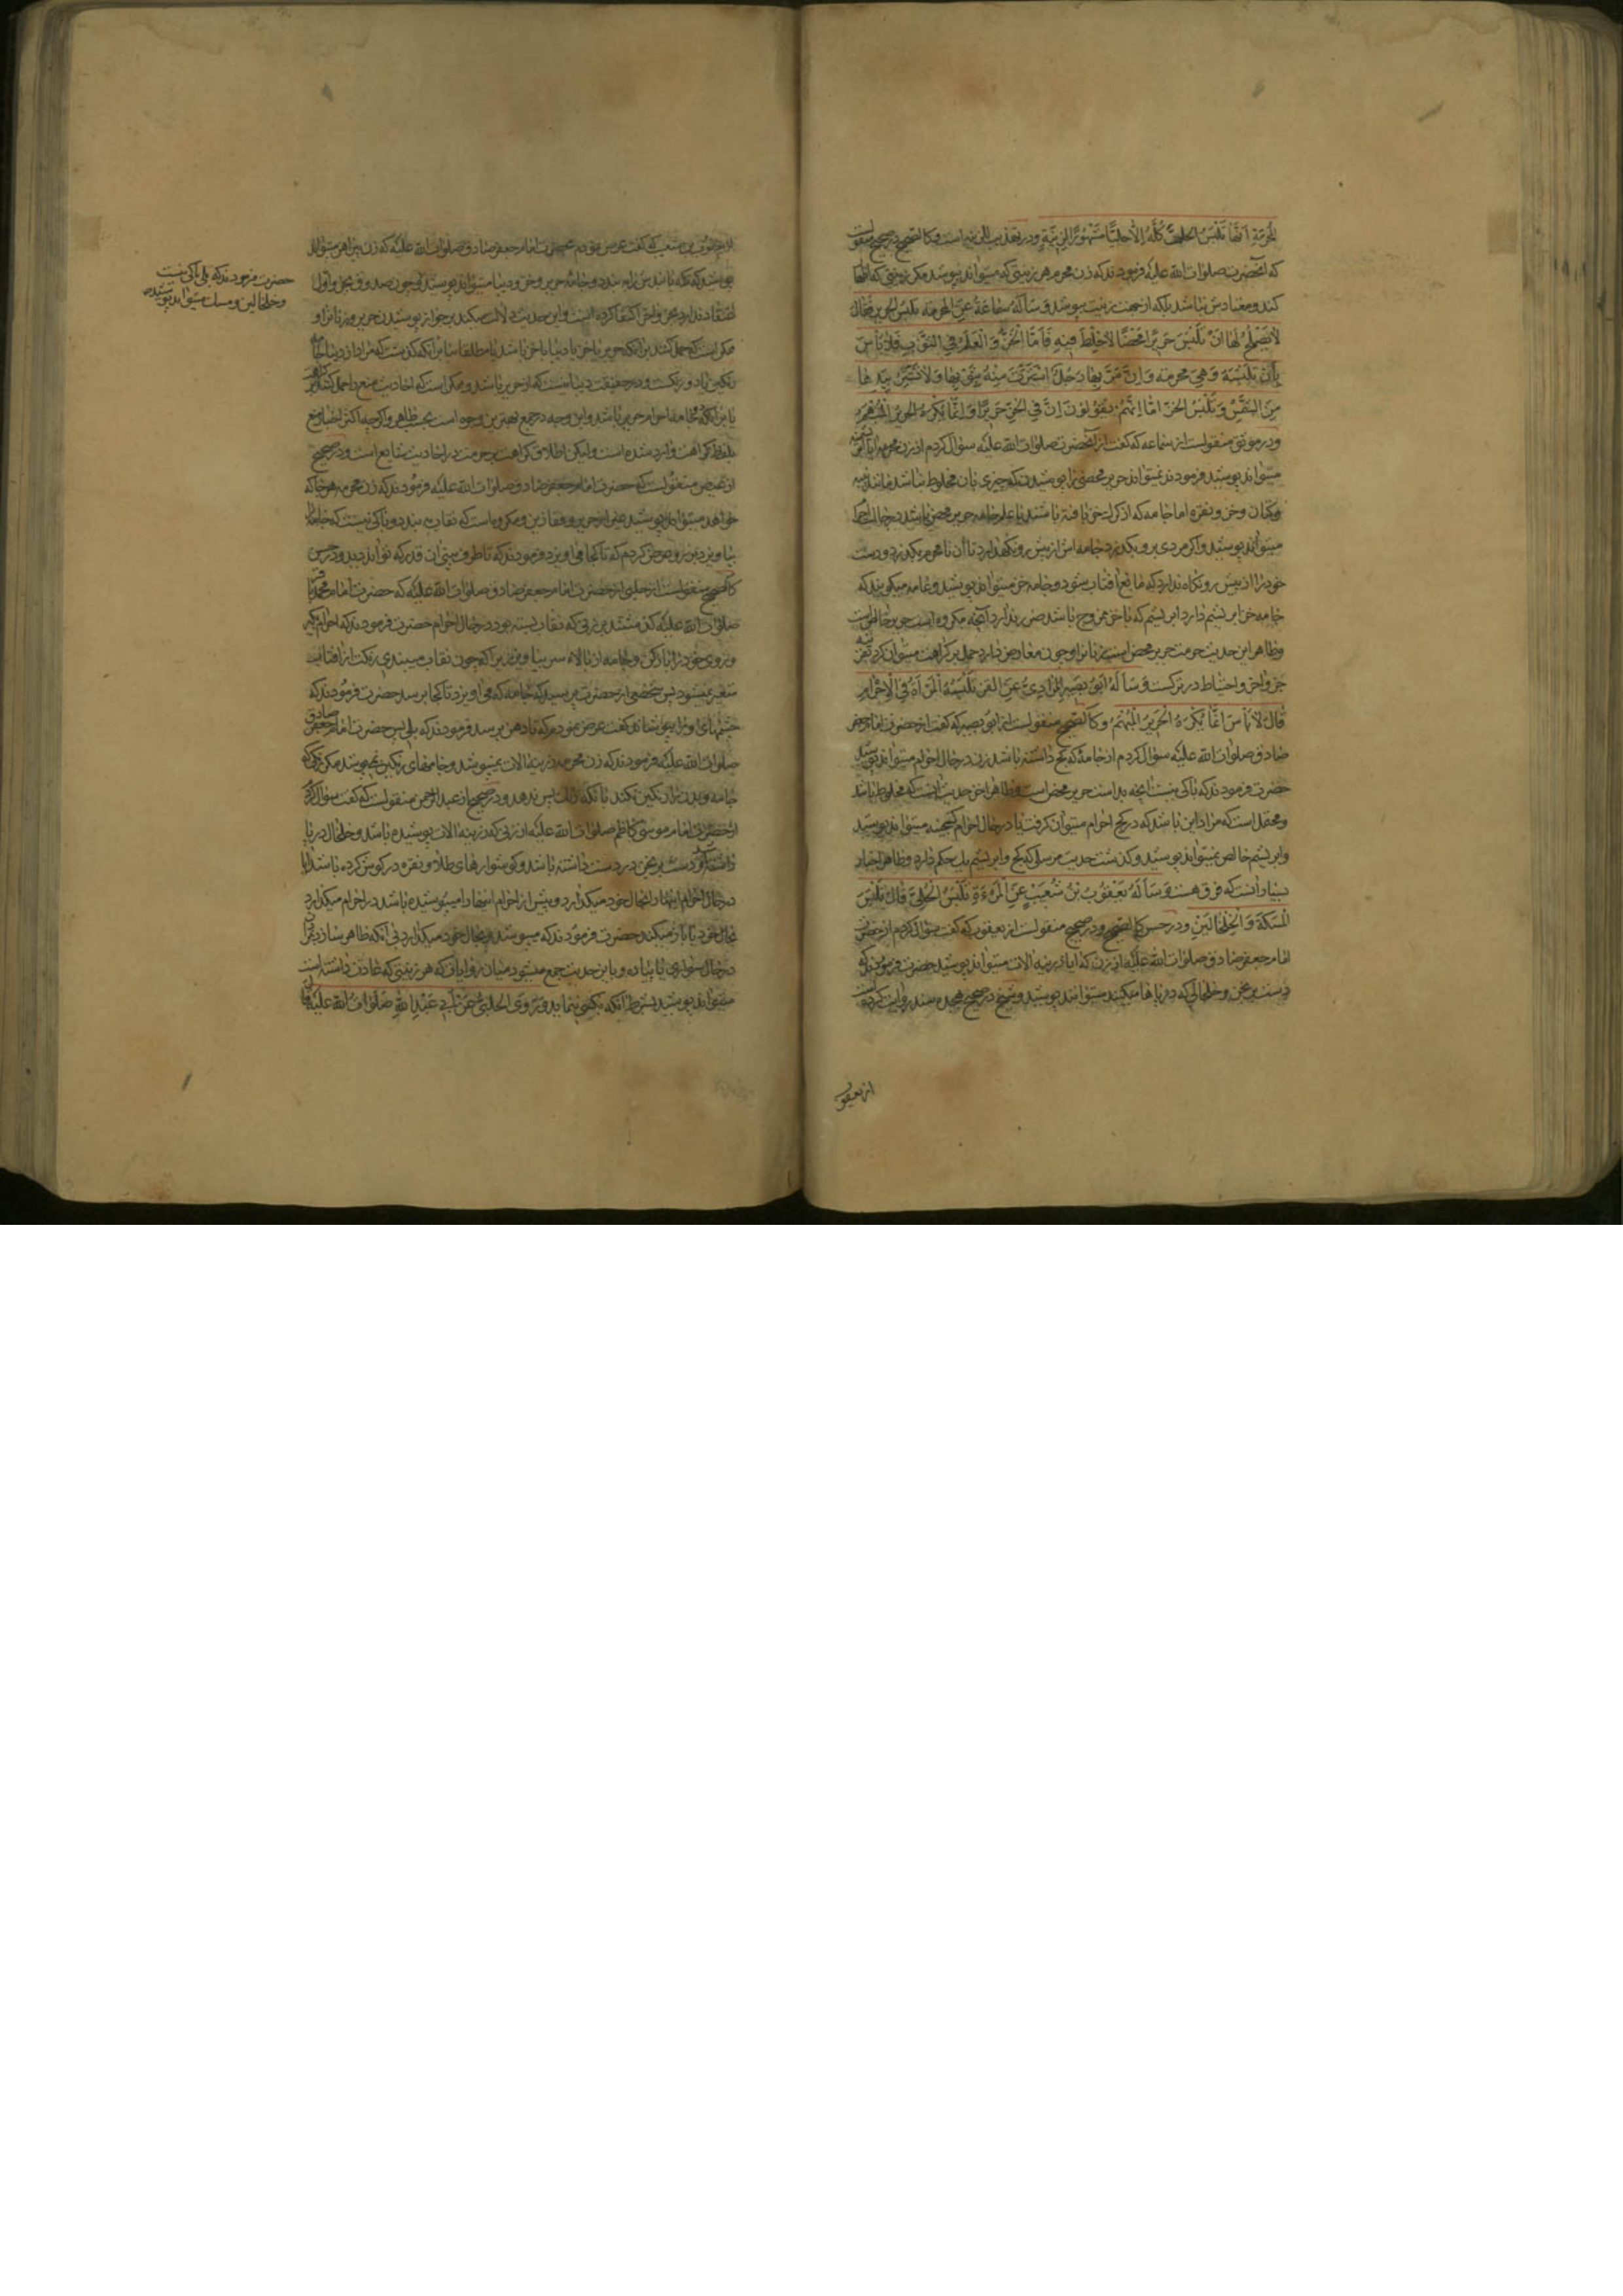 المحرمة انها تلبس الحلی كله الا حلیا مشهورا للزینة و در تهذیب للزینه است و کالصحیح در صحیح منقولست
که آنحضرت صلوات الله علیه فرمودند که زن محرمه هر زینتی که میتواند بپوشد مکر زینتی که اظهار
کند و معتادش نباشد بلکه از جهت زینت بپوشد و سأله سماعة عن المحرمة تلبس الحریر فقال
لا یصلح لها ان تلبس حریرا محضا لا خلط فیه فاما الخز و العلم فی الثوب فلا بأس
بأن تلبسه و هی محرمة و ان مر بها رجل استترت منه بثوبها و لا تستتر بیدها
من الشمس و تلبس الخز اما انهم یقولون ان فی الخز حریرا و انما یکره الحریر المبهم
و در موثق منقولست از سماعه که گفت از آنحضرت صلوات الله علیه سؤال کردم از زن محرمه آیا حریر
میتواند پوشید فرمودند نمیتواند حریر محضی را پوشیدن که چیزی بان مخلوط نباشد مانند پنبه
و کتان و خز و نقره اما جامه که از کرک خز بافته باشند یا علم جامه حریر محض باشد در حالت احرام
میتواند پوشید و اکر مردی برو بکذرد جامه اش را پیش رو نکهدارد تا آن نامحرم بکذرد و دست
خود را از پیش رو نکاه ندارد که مانع آفتاب شود و جامه خز میتواند پوشید و عامه میکویند که
جامه خز ابریشم دارد ابریشم که با خز ممزوج باشد ضرر ندارد آنچه مکروه است حریر خالص است
و ظاهر این حدیث حرمت حریر محض است زنانرا و چون معارض دارد حمل بر کراهت میتوان کرد بقرینه
جزو آخر و احتیاط در ترکست و سأله ابو بصیر المرادی عن القز تلبسه المرأة فی الاحرام
قال لا بأس انما یکره الحریر المبهم و کالصحیح منقولست از ابو بصیر که گفت از حضرت امام جعفر
صادق صلوات الله علیه سؤال کردم از جامهٔ که کج داشته باشد زن در حال احرام میتواند پوشید
حضرت فرمودند که باکی نیست آنچه بد است حریر محض است و ظاهر آخر حدیث اینست که مخلوط باشد
و محتمل است که مراد این باشد که در کج احرام میتوان کرفت یا در حال احرام کجینه میتواند پوشید
و ابریشم خالص نمیتواند پوشید و گذشت حدیث مرسلی که کج و ابریشم یک حکم دارد و ظاهر اخبار
بسیار آنست که فرق هست و سأله یعقوب بن شعیب عن المرءة تلبس الحلی قال تلبس
المسکة و الخلخالین و در حسن کالصحیح و در صحیح منقولست از یعقوب که گفت سؤال کردم از حضرت
امام جعفر صادق صلوات الله علیه از زن که آیا زرینه آلات میتواند پوشید حضرت فرمودند که
دست برنجن و خلخالی که در پاها میکنند میتوانند پوشید و شیخ در صحیح هجده سند روایت کرده است
از یعقوب
بن شعیب که گفت عرض نمودم بحضرت امام جعفر صادق صلوات الله علیه که زن پیراهن میتواند
پوشید که تکمه باشد برش بندد و جامه حریر و خز و دیبا میتواند پوشید و چون صدوق بجزو اول
اعتقاد ندارد بجزو آخر اکتفا کرده است و این حدیث دلالت میکند بر جواز پوشیدن حریر و زنانرا و
ممکن است که حمل کنند بر آنکه حریر با خز یا دیبا با خز باشد یا مطلقا بنا بر آنکه گذشت که مراد از دیبا
رنکین یا دو رنکست و در حقیقت دیبا نیست که از حریر باشد و ممکن است که احادیث منع را حمل کنند بر کراهت
یا بر آنکه جامه احرام حریر باشد و این وجه در جمع بهترین وجوه است بحسب ظاهر و اکرچه اکثر اخبار منع
بلفظ کراهت وارد شده است و لیکن اطلاق کراهت بر حرمت در احادیث شایع است و در صحیح
از عیص منقولست که حضرت امام جعفر صادق صلوات الله علیه فرمودند که زن محرمه هر جامه که
خواهد میتواند پوشید غیر از حریر و قفازین و مکروهست که نقاب به بندد و باکی نیست که جامه را
بیاویزد برین رو عرض کردم که تا کجا میاویزد فرمودند که تا طرف بینی آن قدر که تواند دید و در حسن
کالصحیح منقولست از حلبی از حضرت امام جعفر صادق صلوات الله علیه که حضرت امام محمد باقر
صلوات الله علیه گذشتند بر زنی که نقاب بسته بود در حال احرام حضرت فرمودند که احرام گیر
و روی خود را باز کن و جامه از بالاء سر بیاویز زیرا که چون نقاب میبندی رنکت از آفتاب
متغیر نمیشود پس شخصی از حضرت پرسید که جامه که می آویزد تا کجا برسد حضرت فرمودند که
چشمهای او را بپوشاند گفت عرض نمودم که تا دهن برسد فرمودند که بلی پس حضرت امام جعفر صادق
صلوات الله علیه فرمودند که زن محرمه زرینه آلات نمیپوشد و جامهای رنکین نمیپوشد مکر رنکی که
جامه و بدن را رنکین نکند با آنکه رنک پس ندهد و در صحیح از عبدالرحمن منقولست که گفت سؤال کردم
از حضرت امام موسی کاظم صلوات الله علیه از زنی که زرینه آلات پوشیده باشد و خلخال در پا
داشته و دست برنجن در دست داشته باشد و کوشوارهای طلا و نقره در کوش کرده باشد آیا
در حال احرام اینها را بحال خود میکذارد و پیش از احرام اینها را میپوشیده باشد در احرام میکذارد
بحال خود یا باز میکند حضرت فرمودند که میپوشد و بحال خود میکذارد بی آنکه ظاهر سازد بمردان
در حال سواری یا پیاده و باین حدیث جمع میشود میان روایاتی که هر زینتی که عادت داشته است
میتواند پوشید بشرط آنکه بکسی ننماید و روی الحلبی عن ابی عبد الله صلوات الله علیه قال
حضرت فرمودند که بلی باکی نیست
و خلخالین و مسک میتواند پوشید صح